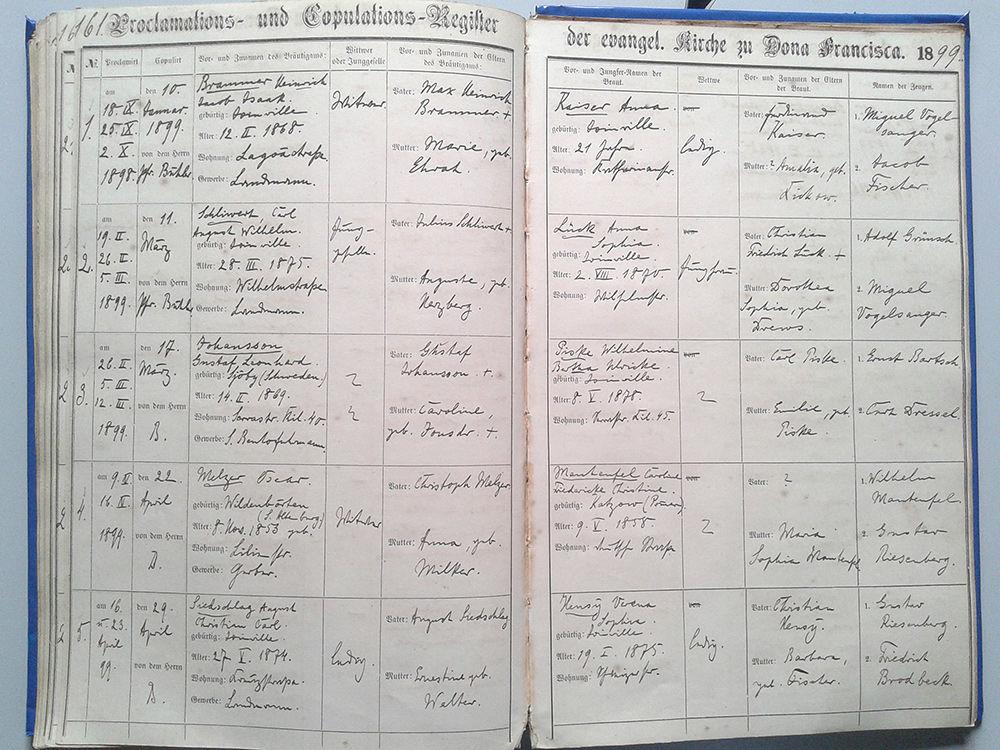 161.
Proclamations- und Copulations-Register
der evangel. Kirche zu Dona Francisca. 1899.
№ Proclamirt Copulirt Vor- und Zunamen des Bräutigams: Wittwer oder Junggeselle Vor- und Zunamen der Eltern des Bräutigams:
Vor- und Jungfer-Namen der Braut. Wittwe Vor- und Zunamen der Eltern der Braut. Namen der Zeugen.
1.
am 18. IX. 25. IX. 2. X. 1898.
den 10. Januar 1899.
von dem Herrn Pfr. Bühler
Brammer Heinrich
Jacob Isaak
gebürtig: Joinville.
Alter: 12. II. 1868.
Wohnung: Lagoastraße
Gewerbe: Landmann.
Wittwer
Vater: Max Heinrich
Brammer +
Mutter: Marie, geb.
Kaiser Anna
gebürtig: Joinville.
Alter: 21 Jahre.
Wohnung:
von
ledig.
Vater: Ferdinand
Kaiser.
Mutter: Amalia, geb.
1. Miguel Vogel-
sanger.
2. Jacob
Fischer.
2.
am 19. II. 26. II. 5. III. 1899.
den 11. März
von dem Herrn Pfr. Bühler
Schliwert, Carl
August Wilhelm.
gebürtig: Joinville.
Alter: 28. III. 1875.
Wohnung: Wilhelmstraße
Gewerbe: Landmann.
Jung-
geselle.
Vater: Julius Schliwert +
Mutter: Auguste, geb.
Herzberg.
Lück Anna
Sophia.
gebürtig: Joinville.
Alter: 2. VIII. 1870.
Wohnung: Wilhelmstr.
Jungfrau.
Vater: Christian
Friedrich Lück. +
Mutter: Dorothea
Sophia, geb.
Drews.
1. Adolf Grünsch.
2. Miguel
Vogelsanger.
3.
am 26. II. 5. III. 12. III. 1899.
den 17. März.
von dem Herrn B.
Johansson
Gustaf Leonhard.
gebürtig: Sjöby (Schweden)
Alter: 14. II. 1869.
Wohnung: Kil. 40.
Gewerbe:
?
?
Vater: Gustaf
Johansson. +
Mutter: Caroline,
geb. +
Piske Wilhelmine
Bertha Ulricke.
gebürtig: Joinville.
Alter: 8. V. 1878.
Wohnung: Kil. 45.
von
?
Vater: Carl Piske
Mutter: Emilie, geb.
Piske.
1. Ernst Bartsch
2. Curt Dressel.
4.
am 9. IV. 16. IV. 1899.
den 22. April
von dem Herrn B.
Melzer Oscar.
gebürtig:
Alter: 8. Nov. 1853 geb.
Wohnung:
Gewerbe: Gerber.
Wittwer
Vater: Christoph Melzer
Mutter: Anna, geb.
Milker.
Manteufel Carline
Friedericke Christine.
gebürtig: Katzow (Pomern)
Alter: 9. V. 1855.
Wohnung:
?
Vater: ?
Mutter: Maria
Sophia Manteufel
1. Wilhelm
Manteufel.
2. Gustav
Riesenberg.
5.
am 16. u. 23. April 99.
den 29. April
von dem Herrn B.
Siedschlag August
Christian Carl.
gebürtig: Joinville.
Alter: 27. V. 1874.
Wohnung:
Gewerbe: Landmann.
ledig.
Vater: August Siedschlag
Mutter: Ernestine geb.
Walter.
Hensy Verena
Sophia.
gebürtig: Joinville.
Alter: 19. I. 1875.
Wohnung:
von
ledig.
Vater: Christian
Hensy.
Mutter: Barbara,
geb. Fischer.
1. Gustav
Riesenberg.
2. Friedrich
Brodbeck.